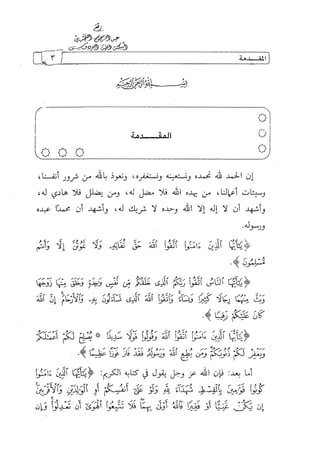 رفع
عبد الرحمن النجدي
أسكنه الله الفردوس
المقـــدمة
٣
بسم الله الرحمن الرحيم
المقـــدمة
إن الحمد لله نحمده ونستعينه ونستغفره، ونعوذ بالله من شرور أنفسنا،
وسيئات أعمالنا، من يهده الله فلا مضل له، ومن يضلل فلا هادي له،
وأشهد أن لا إله إلا الله وحده لا شريك له، وأشهد أن محمدًا عبده
ورسوله.
﴿يَٰٓأَيُّهَا ٱلَّذِينَ ءَامَنُوا۟ ٱتَّقُوا۟ ٱللَّهَ حَقَّ تُقَاتِهِۦ وَلَا تَمُوتُنَّ إِلَّا وَأَنتُم
مُّسْلِمُونَ﴾.
﴿يَٰٓأَيُّهَا ٱلنَّاسُ ٱتَّقُوا۟ رَبَّكُمُ ٱلَّذِى خَلَقَكُم مِّن نَّفْسٍ وَٰحِدَةٍ وَخَلَقَ مِنْهَا زَوْجَهَا
وَبَثَّ مِنْهُمَا رِجَالًا كَثِيرًا وَنِسَآءً وَٱتَّقُوا۟ ٱللَّهَ ٱلَّذِى تَسَآءَلُونَ بِهِۦ وَٱلْأَرْحَامَ إِنَّ ٱللَّهَ
كَانَ عَلَيْكُمْ رَقِيبًا﴾.
﴿يَٰٓأَيُّهَا ٱلَّذِينَ ءَامَنُوا۟ ٱتَّقُوا۟ ٱللَّهَ وَقُولُوا۟ قَوْلًا سَدِيدًا * يُصْلِحْ لَكُمْ أَعْمَٰلَكُمْ
وَيَغْفِرْ لَكُمْ ذُنُوبَكُمْ وَمَن يُطِعِ ٱللَّهَ وَرَسُولَهُۥ فَقَدْ فَازَ فَوْزًا عَظِيمًا﴾.
أما بعد: فإن الله عز وجل يقول في كتابه الكريم: ﴿يَٰٓأَيُّهَا ٱلَّذِينَ ءَامَنُوا۟
كُونُوا۟ قَوَّٰمِينَ بِٱلْقِسْطِ شُهَدَآءَ لِلَّهِ وَلَوْ عَلَىٰٓ أَنفُسِكُمْ أَوِ ٱلْوَٰلِدَيْنِ وَٱلْأَقْرَبِينَ
إِن يَكُنْ غَنِيًّا أَوْ فَقِيرًا فَٱللَّهُ أَوْلَىٰ بِهِمَا فَلَا تَتَّبِعُوا۟ ٱلْهَوَىٰٓ أَن تَعْدِلُوا۟ وَإِن